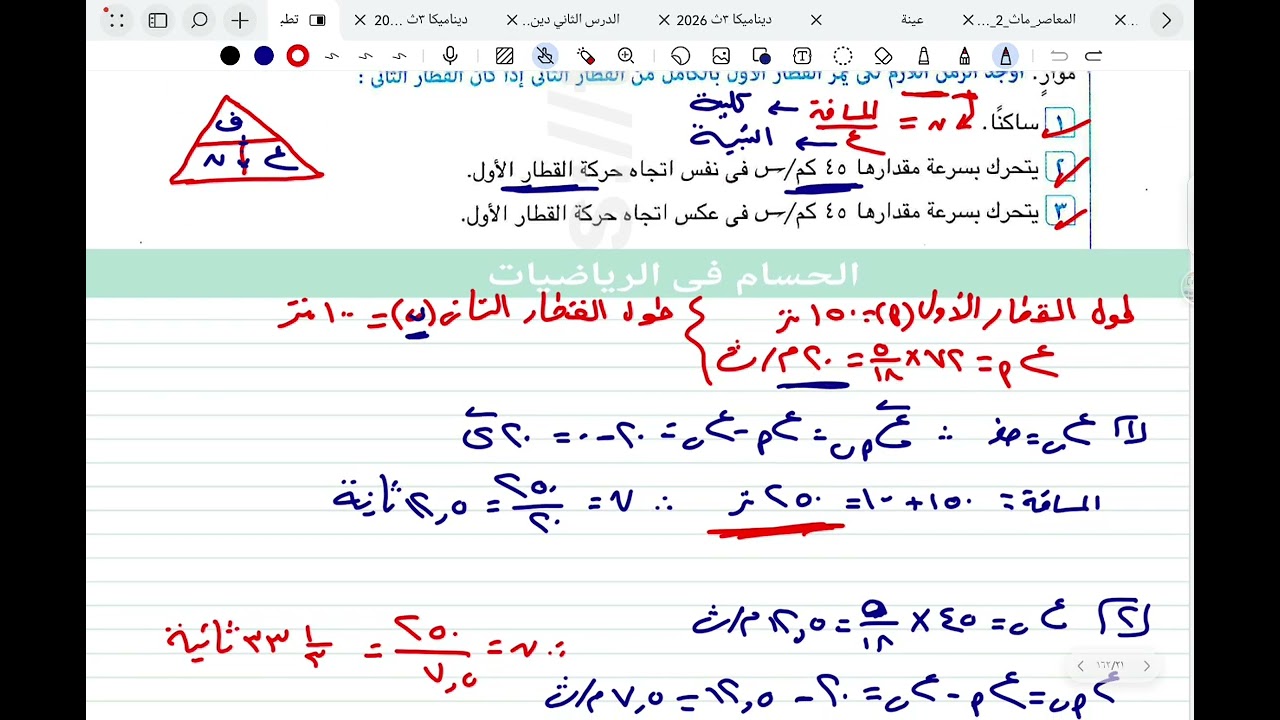 المعاصر_ماث_2_...
عينة
ديناميكا ٣ث 2026
الدرس الثاني دين...
ديناميكا ٣ث ...20
تطبـ
موازٍ. أوجد الزمن اللازم لكى يمر القطار الأول بالكامل من القطار الثانى إذا كان القطار الثانى :
١ ساكنًا. ن = المسافة / ع ← كلية ← النسبية
ف
ع ن
٢ يتحرك بسرعة مقدارها ٤٥ كم/س فى نفس اتجاه حركة القطار الأول.
٣ يتحرك بسرعة مقدارها ٤٥ كم/س فى عكس اتجاه حركة القطار الأول.
الحسام فى الرياضيات
طول القطار الأول (م) = ١٥٠ متر } طول القطار الثانى (ب) = ١٠٠ متر
ع م = ٧٢ × ٥/١٨ = ٢٠ م/ث
١ ع ب = صفر ∴ ع م ب = ع م - ع ب = ٢٠ - ٠ = ٢٠ ى
المسافة = ١٥٠ + ١٠٠ = ٢٥٠ متر ∴ ن = ٢٥٠/٢٠ = ١٢,٥ ثانية
٢ ع ب = ٤٥ × ٥/١٨ = ١٢,٥ م/ث
∴ ن = ٢٥٠/٧,٥ = ٣٣ ١/٣ ثانية
ع م ب = ع م - ع ب = ٢٠ - ١٢,٥ = ٧,٥ م/ث
١٦٢/٢١